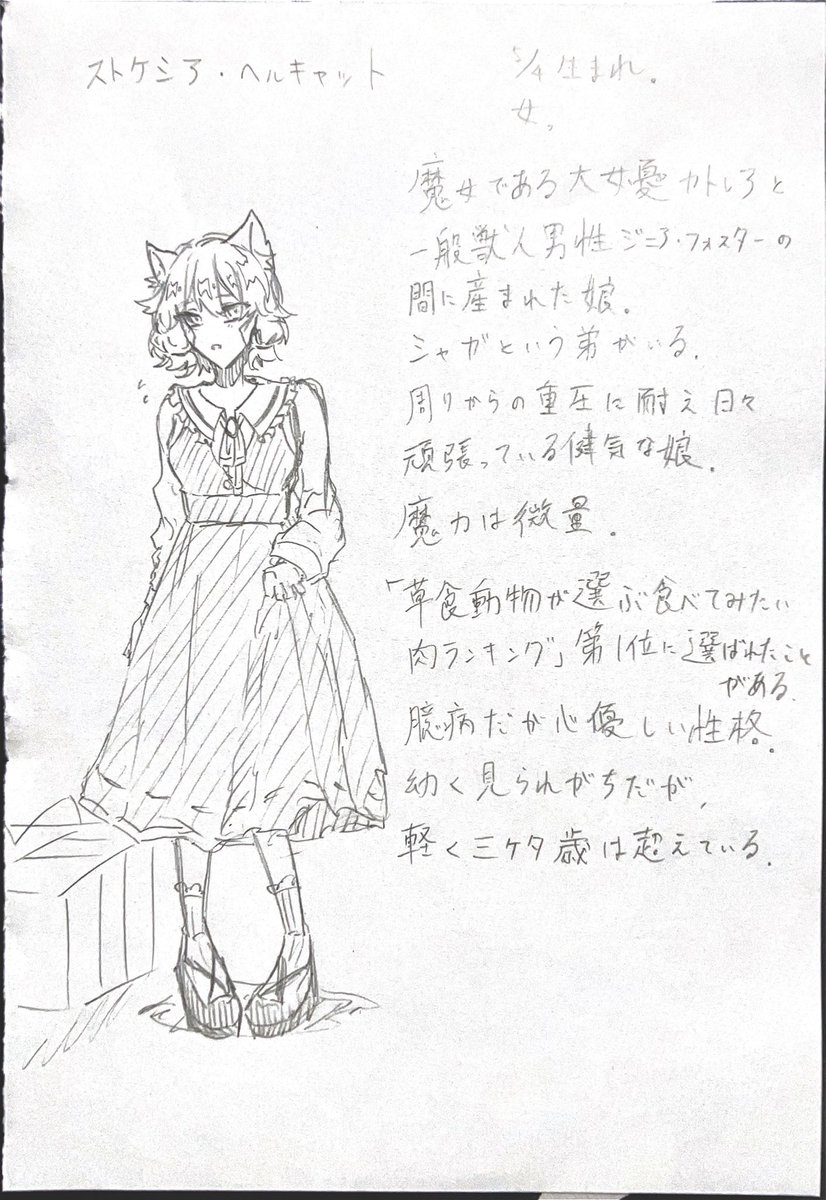 ストケシア・ヘルキャット
5/4生まれ。
女。
魔女である大女優カトレアと
一般獣人男性ジニア・フォスターの
間に産まれた娘。
シャガという弟がいる。
周りからの重圧に耐え日々
頑張っている健気な娘。
魔力は微量。
「草食動物が選ぶ食べてみたい
肉ランキング」第1位に選ばれたこと
がある。
臆病だが心優しい性格。
幼く見られがちだが、
軽く三ケタ歳は超えている。